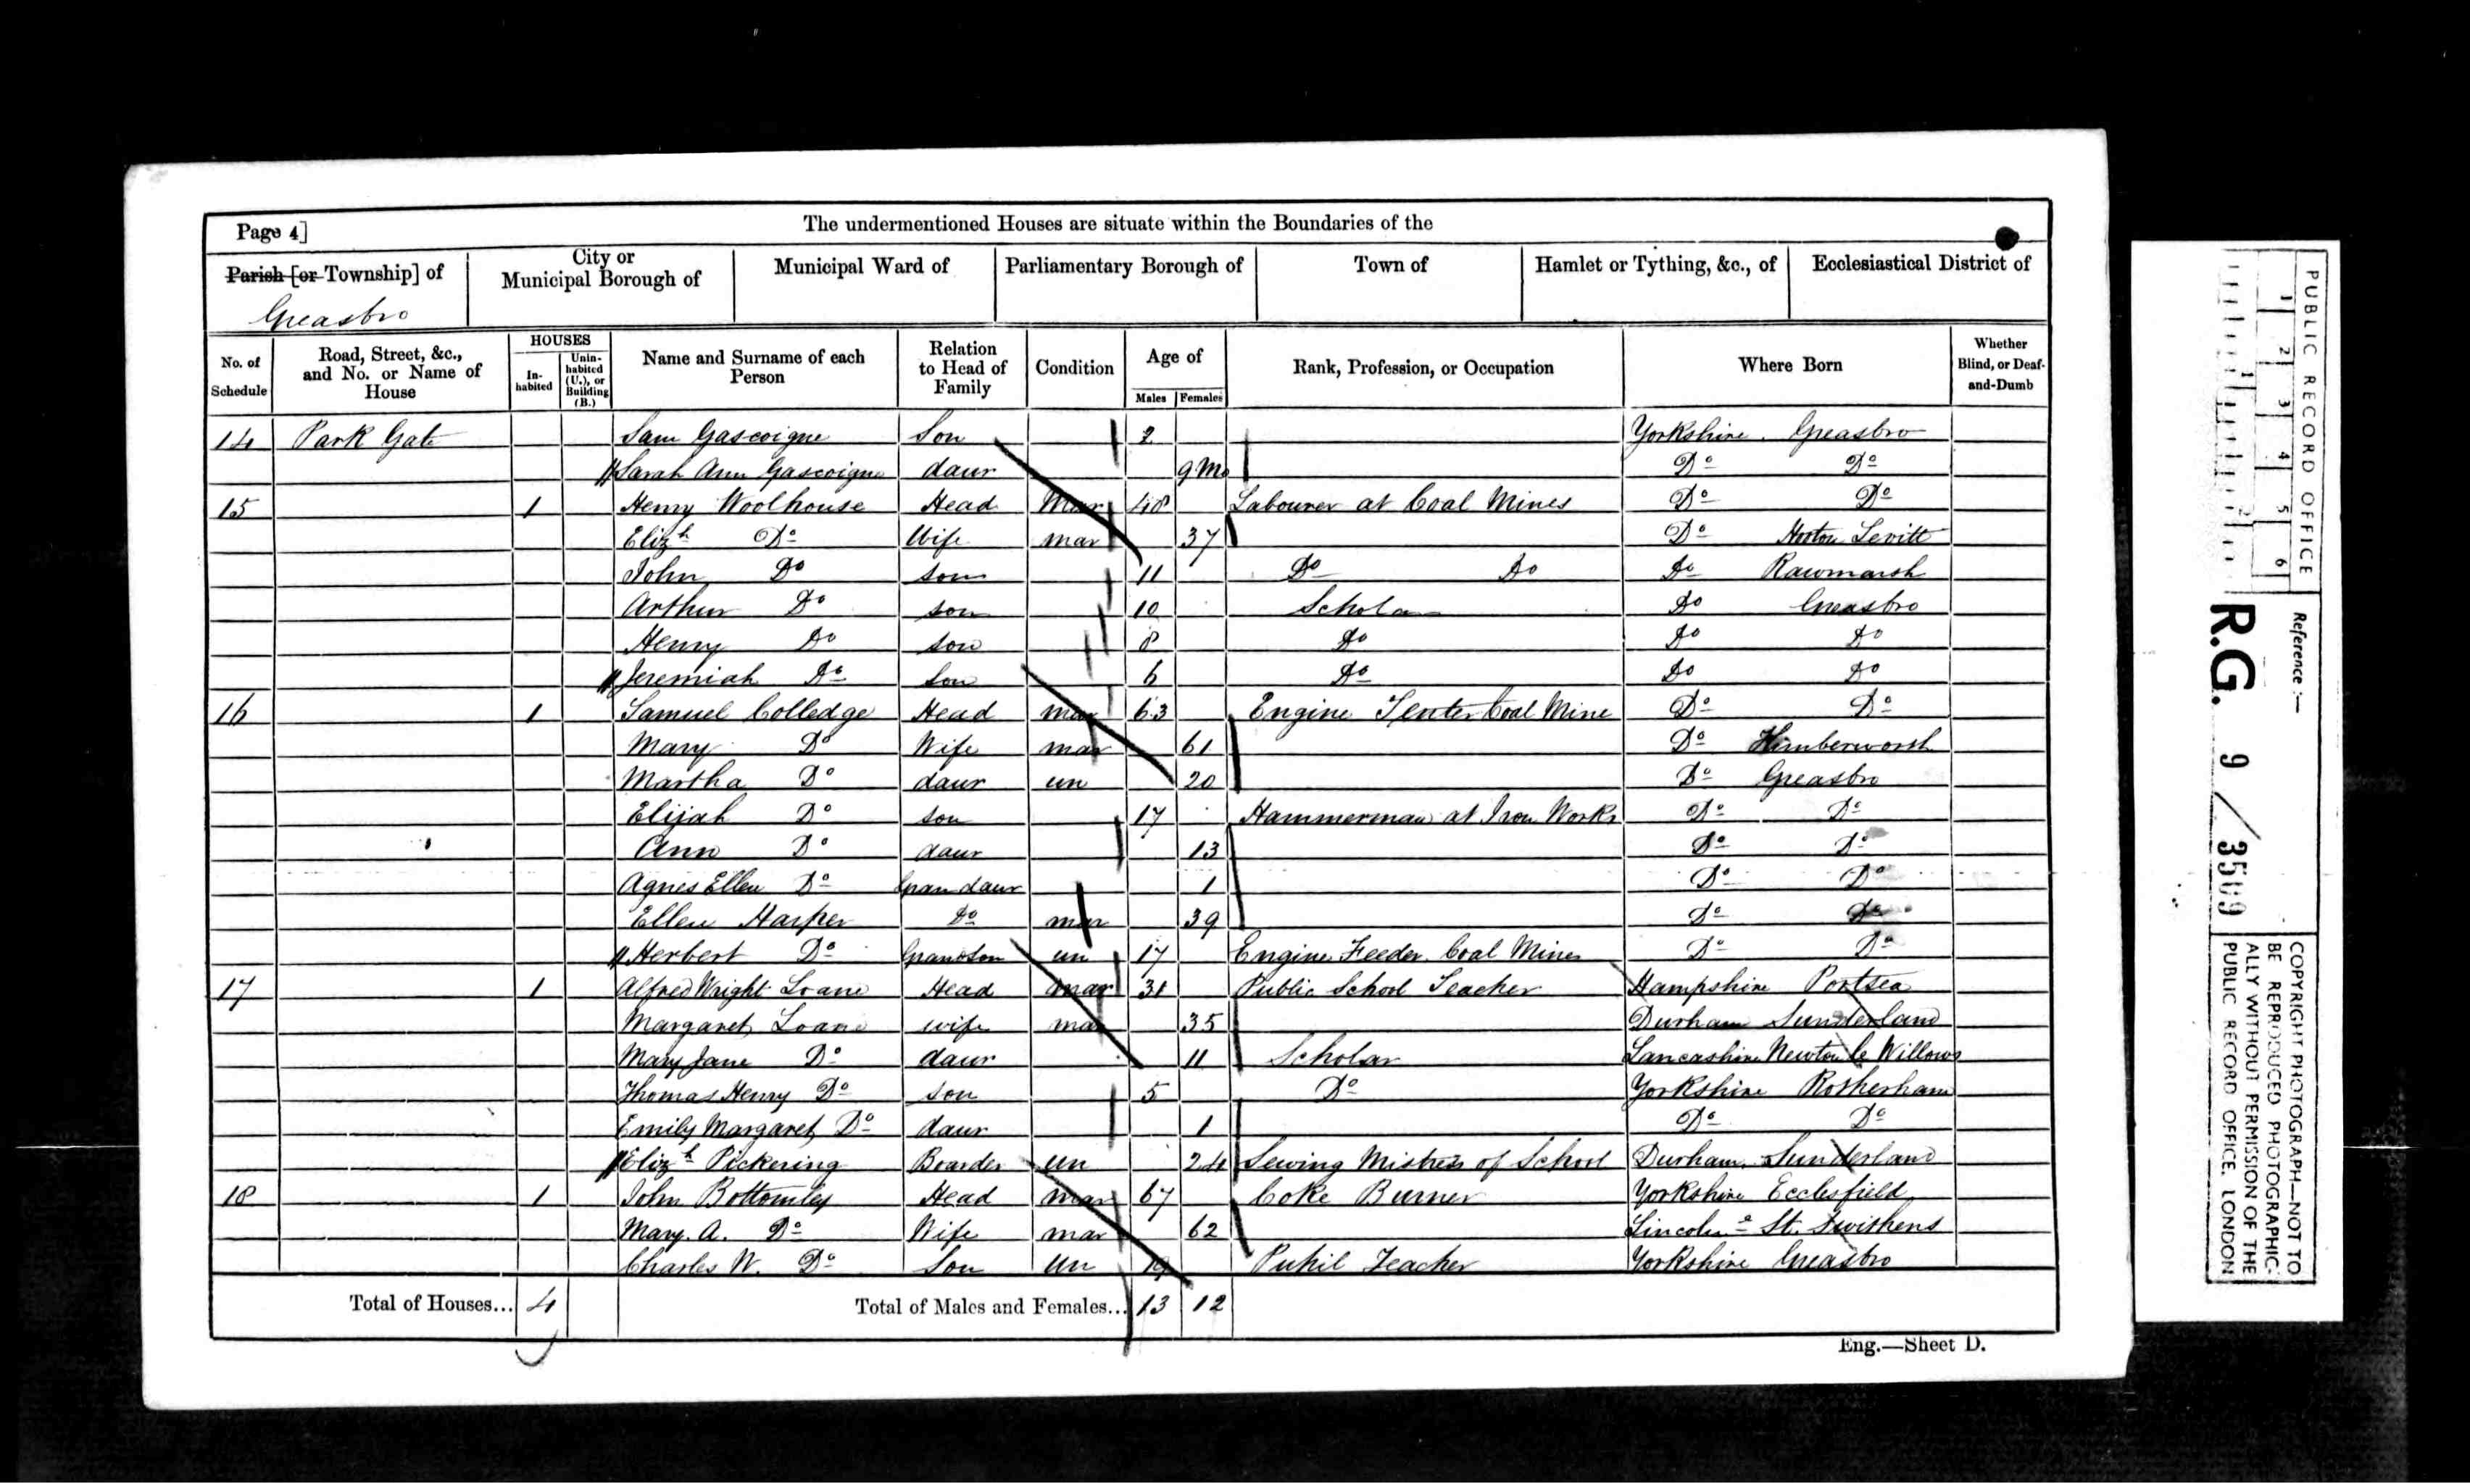 Page 4]
The undermentioned Houses are situate within the Boundaries of the
Parish [or Township] of
Greasbro
City or Municipal Borough of
Municipal Ward of
Parliamentary Borough of
Town of
Hamlet or Tything, &c., of
Ecclesiastical District of
No. of Schedule
Road, Street, &c., and No. or Name of House
HOUSES
In-habited
Unin-habited (U.), or Building (B.)
Name and Surname of each Person
Relation to Head of Family
Condition
Age of
Males
Females
Rank, Profession, or Occupation
Where Born
Whether Blind, or Deaf-and-Dumb
14 Park Gate Sam Gascoigne Son 2 Yorkshire Greasbro
Sarah Ann Gascoigne daur 9 Mo Do Do
15 1 Henry Woolhouse Head Mar 48 Labourer at Coal Mines Do Do
Elizh Do Wife mar 37 Do Horton Levitt
John Do son 11 Do Do Do Rawmarsh
Arthur Do son 10 Scholar Do Greasbro
Henry Do son 8 Do Do Do
Jeremiah Do Son 6 Do Do Do
16 1 Samuel Colledge Head mar 63 Engine Tenter Coal Mine Do Do
Mary Do Wife mar 61 Do Kimberworth
Martha Do daur un 20 Do Greasbro
Elijah Do son 17 Hammerman at Iron Works Do Do
Ann Do daur 13 Do Do
Agnes Ellen Do Gran daur 1 Do Do
Ellen Harper Do mar 39 Do Do
Herbert Do Grandson un 17 Engine Feeder Coal Mines Do Do
17 1 Alfred Wright Loane Head mar 31 Public School Teacher Hampshire Portsea
Margaret Loane wife mar 35 Durham Sunderland
Mary Jane Do daur 11 Scholar Lancashire Newton le Willows
Thomas Henry Do son 5 Do Yorkshire Rotherham
Emily Margaret Do daur 1 Do Do
Elizh Pickering Boarder un 24 Sewing Mistress of School Durham Sunderland
18 1 John Bottomley Head mar 67 Coke Burner Yorkshire Ecclesfield
Mary. A. Do Wife mar 62 Lincolne St. Swithens
Charles W. Do Son Un 19 Pupil Teacher Yorkshire Greasbro
Total of Houses... 4
Total of Males and Females... 13 12
Eng.—Sheet D.
PUBLIC RECORD OFFICE
1 2 3 4 5 6
1 2
Reference:—
R.G. 9 / 3509
COPYRIGHT PHOTOGRAPH—NOT TO
BE REPRODUCED PHOTOGRAPHIC-
ALLY WITHOUT PERMISSION OF THE
PUBLIC RECORD OFFICE, LONDON